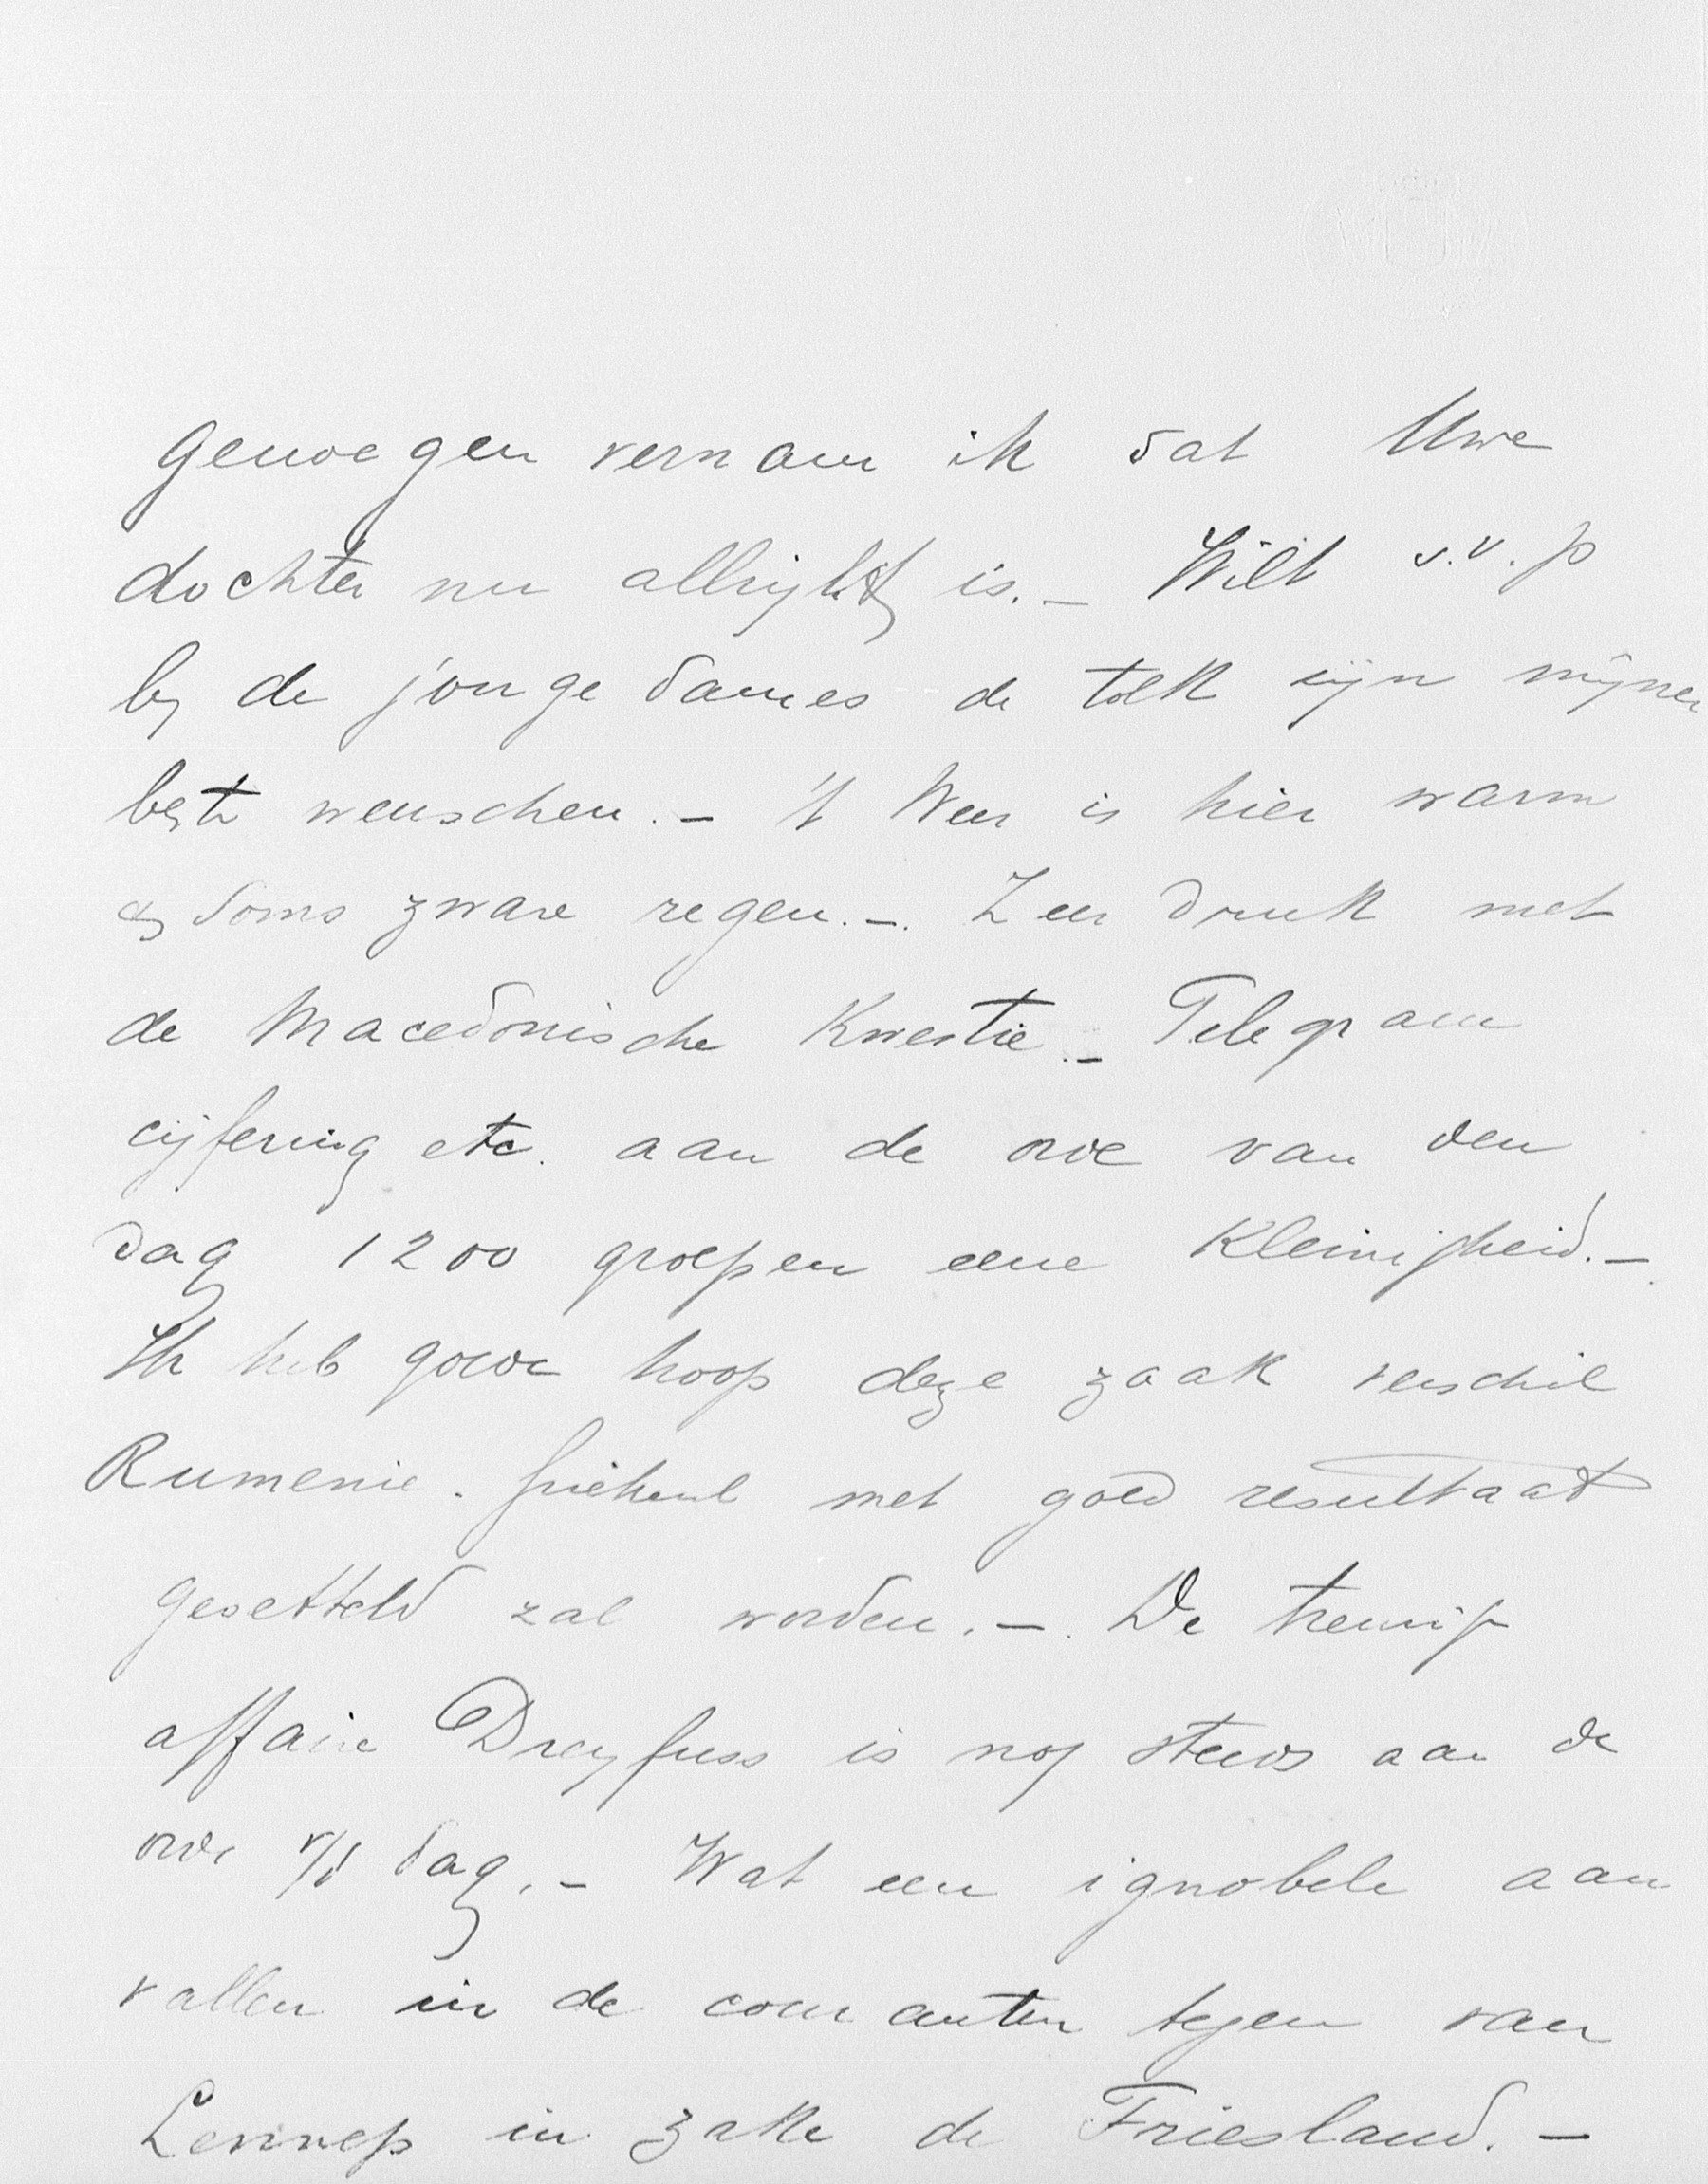 genoegen vernam ik dat Uwe
dochter nu allright is. – Wilt s.v.p
bij de jonge dames de tolk zijn mijner
beste wenschen. – 't Weer is hier warm
& soms zware regen. –. Zeer druk met
de Macedonische Kwestie. – Telegram
cijfering etc. aan de orde van den
dag 1200 groepen eene Kleinigheid. –
Ik heb goede hoop deze zaak verschil
Rumenie. Griekenl met goed resultaat
gesetteld zal worden. –. De treurige
affaire Dreyfuss is nog steeds aan de
orde v/d dag. – Wat een ignobele aan
vallen in de couranten tegen van
Lennep in zake de Friesland. –